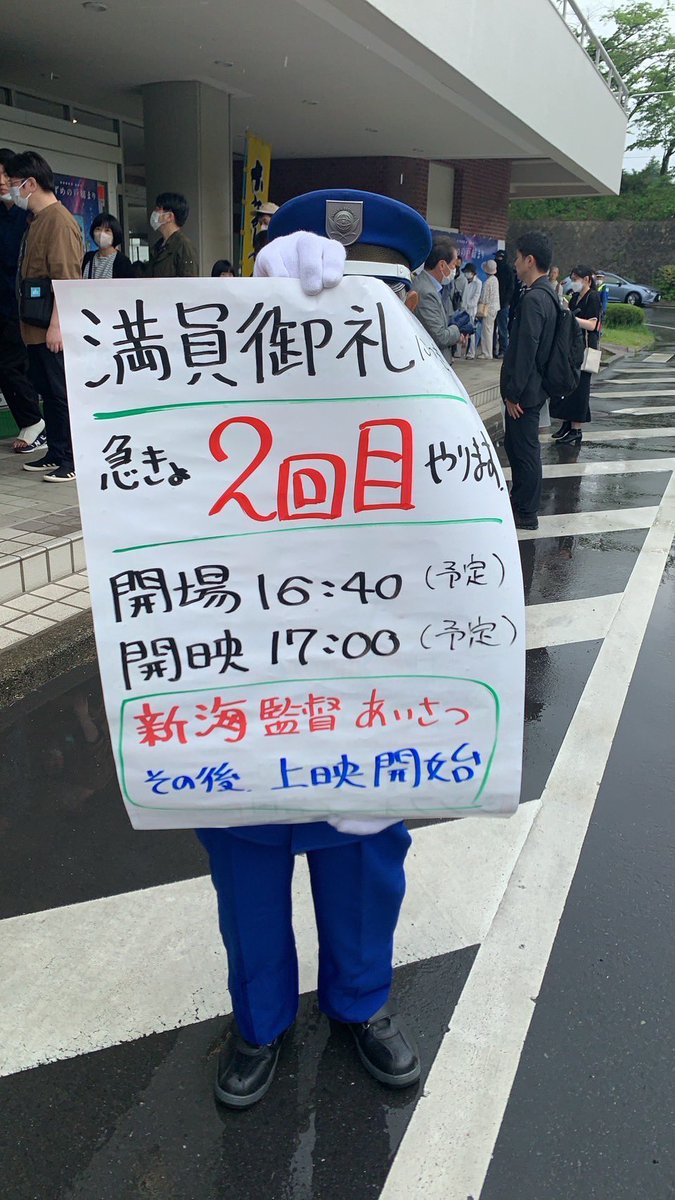 満員御礼
急きょ2回目やります!
開場 16:40 (予定)
開映 17:00 (予定)
新海監督 あいさつ
その後、上映開始